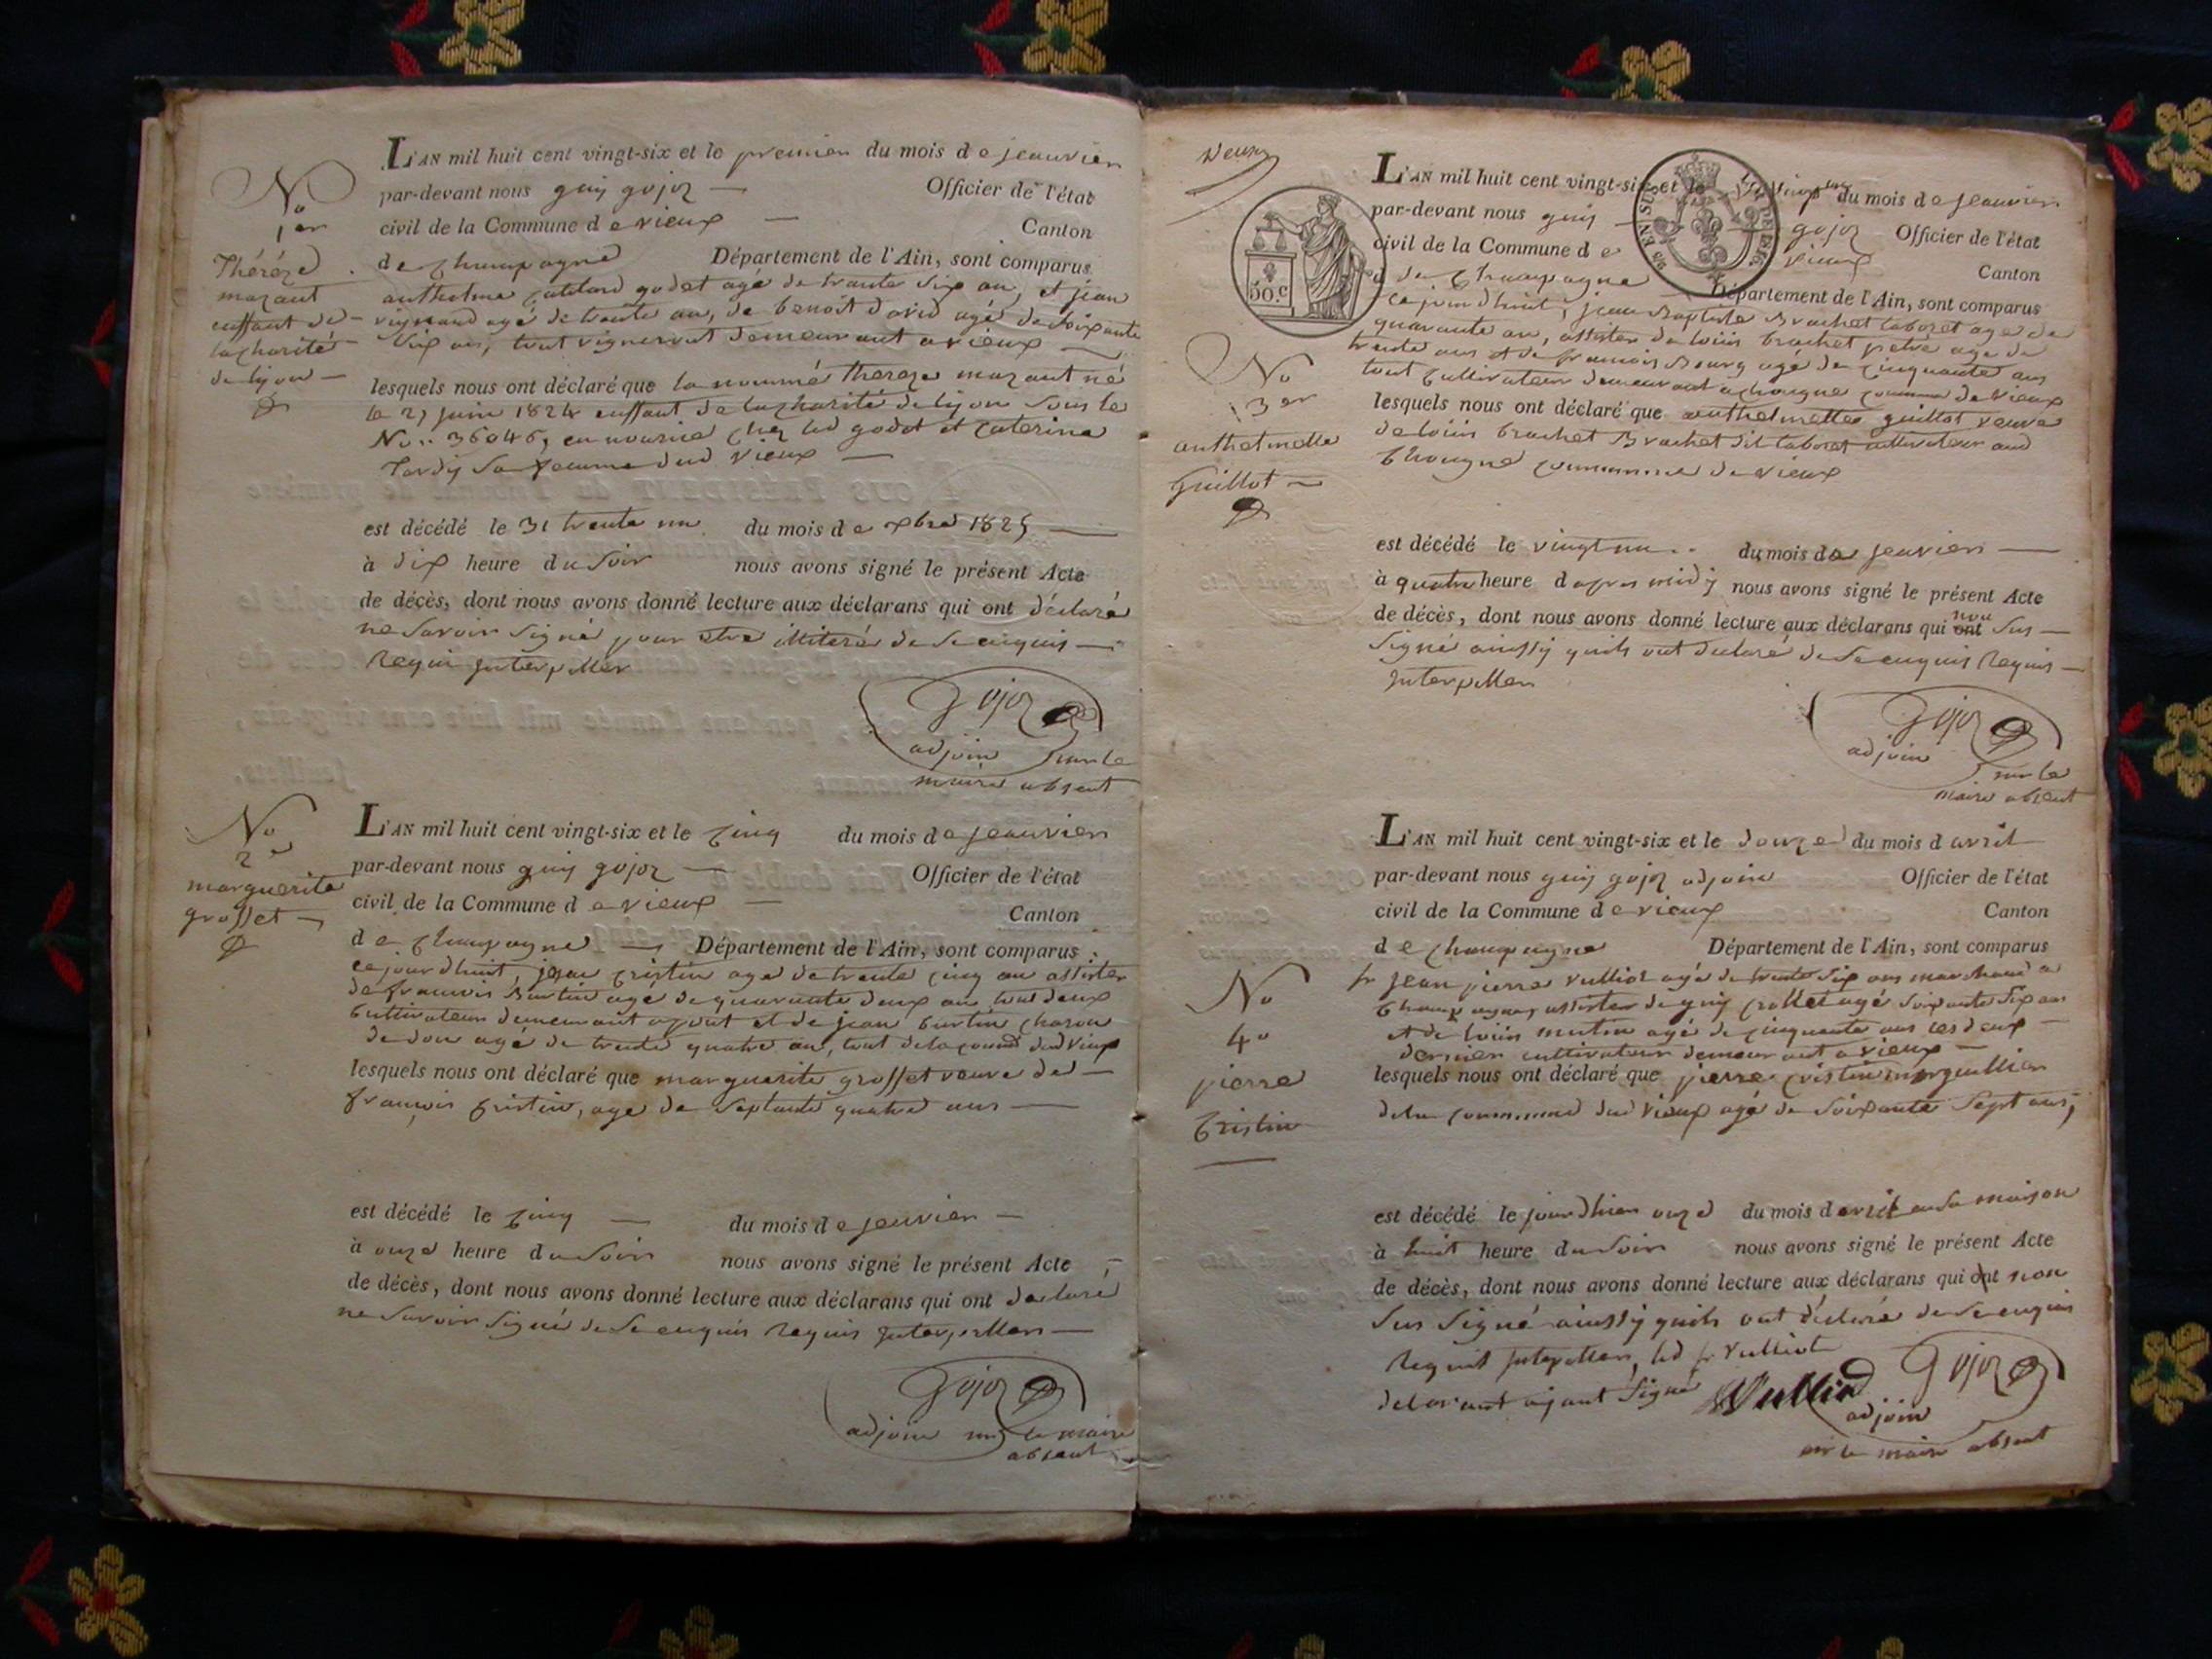 L'AN mil huit cent vingt-six et le premier du mois de jeanvier
par-devant nous guy gojoz Officier de l'état
civil de la Commune de vieux Canton
de champagne Département de l'Ain, sont comparus
anthelme godet agé de trante six an, et jean
vignand agé de trante an, de benoît david agé de soixante
six an, tout vigneront demeurant a vieux
lesquels nous ont déclaré que la nommé thereze mazant né
le 27 juin 1824 enffant de la charité de lyon sous le
No 36046, en nourice chez led godet et caterine
Tardy sa femme dud vieux
est décédé le 31 trente un du mois de xbre 1825
à dix heure du soir nous avons signé le présent Acte
de décès, dont nous avons donné lecture aux déclarans qui ont déclaré
ne savoir signé pour etre illiteré de ce enquis
requis interpeller
gojoz
adjoin pour le
maire absent
No
1er
Thérèze
mazant
enffant de
la charité
de lyon
L'AN mil huit cent vingt-six et le cinq du mois de jeanvier
par-devant nous guy gojoz Officier de l'état
civil de la Commune de vieux Canton
de champagne Département de l'Ain, sont comparus
cejourdhuit, jean cristin age de trente cinq an assister
de francois Burtin agé de quarante deux an tous deux
cultivateur demeurant a pont et de jean burtin charon
de don agé de trente quatre an, tout de la comne dud vieux
lesquels nous ont déclaré que marguerite grosset veuve de
francois cristin, age de septante quatre ans
est décédé le cinq du mois de jeanvier
à onze heure du soir nous avons signé le présent Acte
de décès, dont nous avons donné lecture aux déclarans qui ont declaré
ne savoir signé de ce enquis requis interpeller
gojoz
adjoin pour le maire
absent
No
2e
marguerite
grosset
L'AN mil huit cent vingt-six et le du mois de jeanvier
par-devant nous guy gojoz Officier de l'état
civil de la Commune de vieux Canton
de champagne Département de l'Ain, sont comparus
cejourdhuit, jean Baptiste Brachet taboret age de
quarante an, assister de louis brachet age de
trente ans et de francois Bourg agé de cinquante ans
tout cultivateur demeurant a chongne comune de vieux
lesquels nous ont déclaré que anthelmette guillot veuve
de louis brachet Brachet dit taboret cultivateur aud
chongne commune de vieux
est décédé le vingt un du mois de jeanvier
à quatre heure d apres midy nous avons signé le présent Acte
de décès, dont nous avons donné lecture aux déclarans qui ont non sus
signé ainssy quils ont declaré de ce enquis requis
interpeller
gojoz
adjoin
pour le
maire absent
EN SUS
50.c
No
3er
anthelmette
guillot
L'AN mil huit cent vingt-six et le douze du mois d avril
par-devant nous guy gojoz adjoin Officier de l'état
civil de la Commune de vieux Canton
de champagne Département de l'Ain, sont comparus
sr jean pierre vulliot agé de trente six ans marchand a
champagne assister de guy collet agé soixante six an
et de louis mertin agé de cinquante ans les deux
dernier cultivateur demeurant a vieux
lesquels nous ont déclaré que pierre cristin marguillier
de la commune dud vieux agé de soixante sept ans,
est décédé le jour dhier onze du mois d avril en sa maison
à huit heure du soir nous avons signé le présent Acte
de décès, dont nous avons donné lecture aux déclarans qui ont non
sus signé ainssy quils ont déclaré de ce enquis
requis interpeller, led sr vulliot
declarant ayant signé Vulliod gojoz
adjoin
pour le maire absent
No
4e
pierre
Cristin